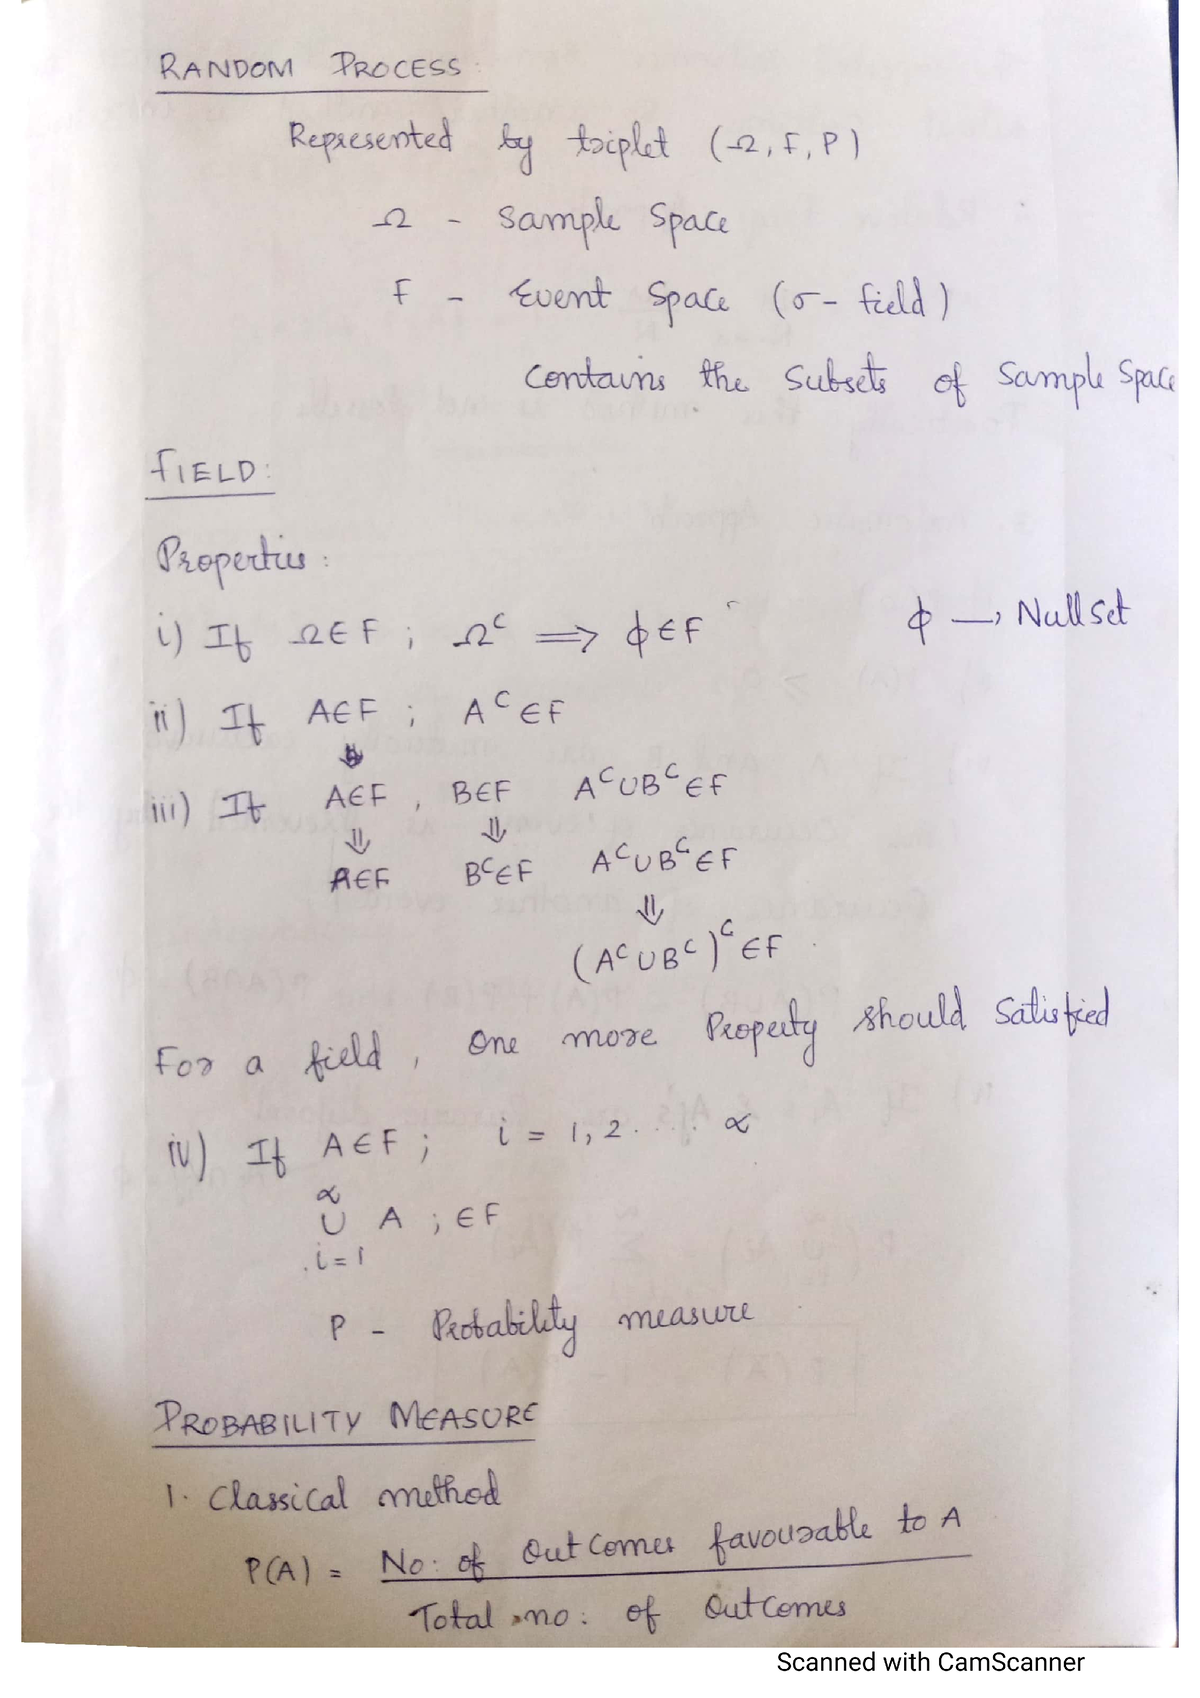 RANDOM PROCESS:
Represented by triplet (Ω, F, P)
Ω - Sample Space
F - Event Space (σ- field)
Contains the Subsets of Sample Space
FIELD:
Properties:
i) If Ω∈F ; Ω^C ⟹ ϕ∈F ϕ → Null Set
ii) If A∈F ; A^C ∈F
⇓
iii) If A∈F , B∈F A^C∪B^C∈F
⇓ ⇓
A∈F B^C∈F A^C∪B^C∈F
⇓
(A^C∪B^C)^C∈F
For a field, One more Property should Satisfied
iv) If A∈F ; i = 1, 2..... ∝
∝
∪ A ; ∈F
i=1
P - Probability measure
PROBABILITY MEASURE
1. Classical method
P(A) = No: of Outcomes favourable to A
Total no: of Outcomes
Scanned with CamScanner